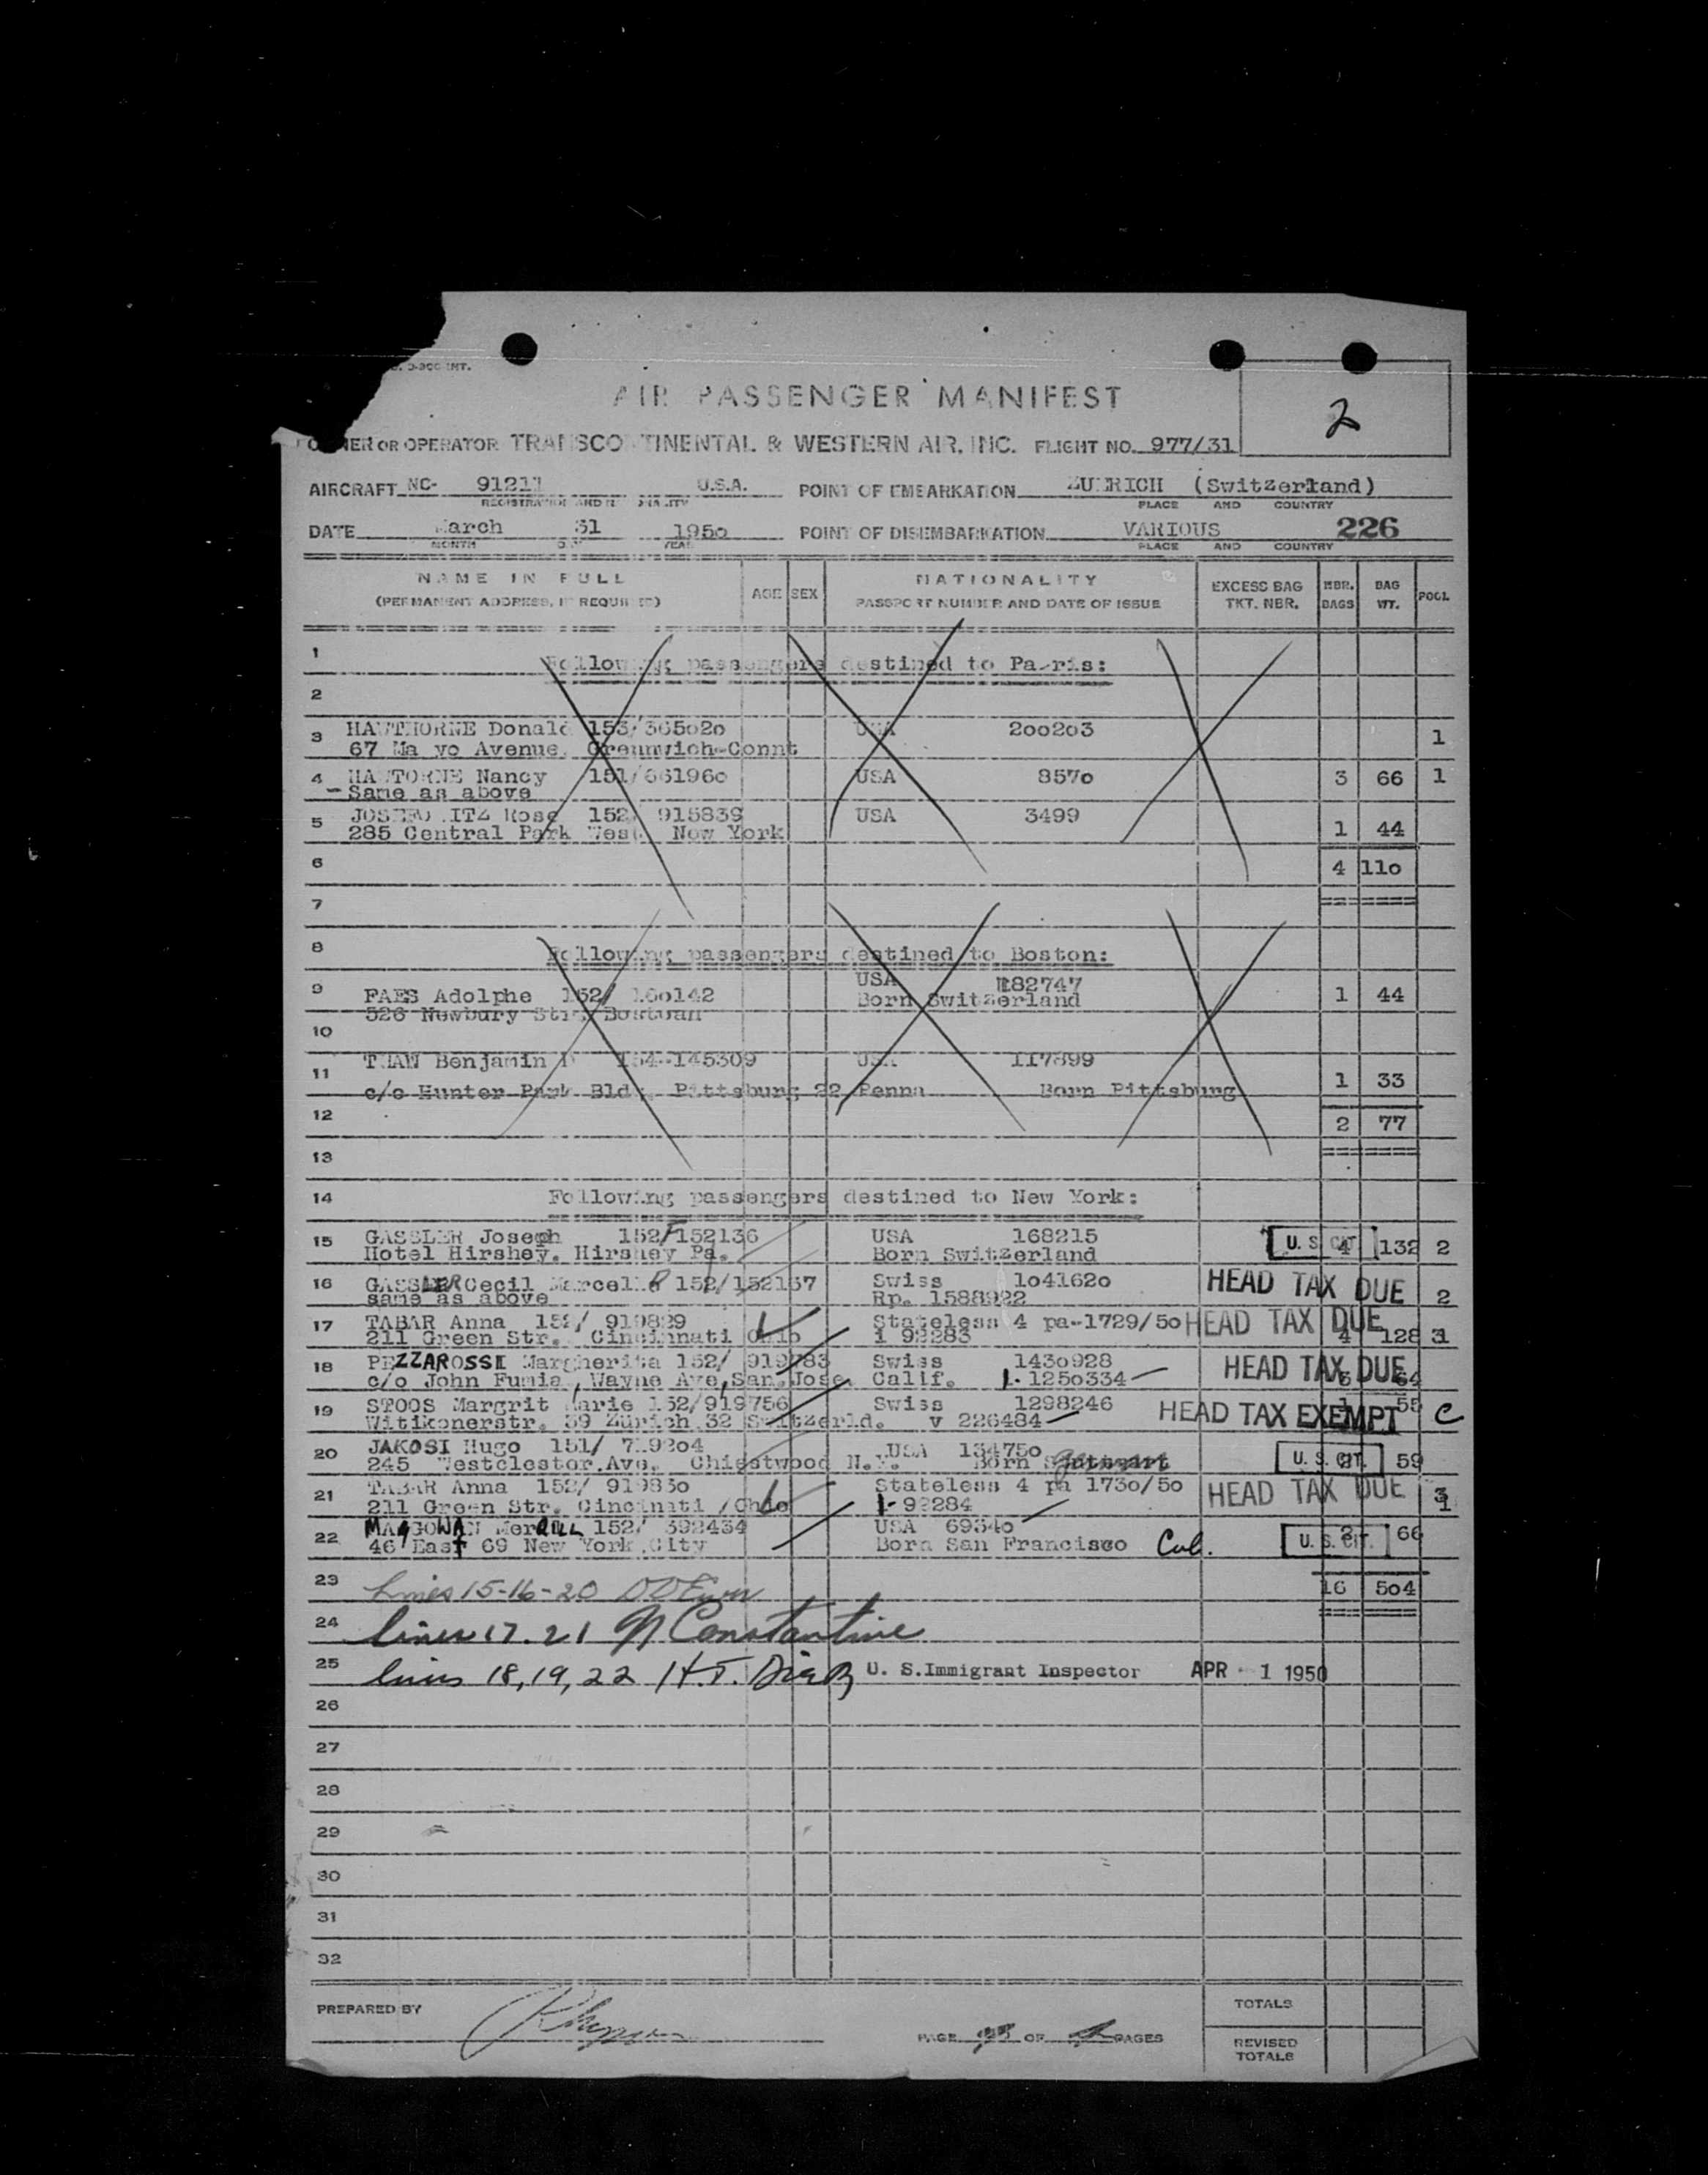 2
AIR PASSENGER MANIFEST
OWNER OR OPERATOR TRANSCONTINENTAL & WESTERN AIR, INC. FLIGHT NO. 977/31
AIRCRAFT NC- 91211 U.S.A. POINT OF EMBARKATION ZUERICH (Switzerland)
REGISTRATION AND NATIONALITY PLACE AND COUNTRY
DATE March 31 1950 POINT OF DISEMBARKATION VARIOUS 226
MONTH DAY YEAR PLACE AND COUNTRY
NAME IN FULL AGE SEX NATIONALITY EXCESS BAG NBR. BAG POOL
(PERMANENT ADDRESS, IF REQUIRED) PASSPORT NUMBER AND DATE OF ISSUE TKT. NBR. BAGS WT.
1 Following passengers destined to Pa-ris:
2
3 HAWTHORNE Donald 153/365020 USA 200203 1
67 Avenue, Greunwich-Connt
4 HAWTORNE Nancy 151/661960 USA 8570 3 66 1
-Same as above
5 Rose 152/ 915839 USA 3499
285 Central Park West New York 1 44
6 4 110
7
8 Following passengers destined to Boston:
9 FAES Adolphe 152/ 160142 USA 182747 1 44
526 Newbury Str. Born Switzerland
10
11 THAW Benjamin 154-145309 USA 117899
c/o Hunter Park Bldg. Pittsburg 22 Penna Born Pittsburg 1 33
12 2 77
13
14 Following passengers destined to New York:
15 GASSLER Joseph 152/152136 USA 168215 U. S. CIT. 4 132 2
Hotel Hirshey, Hirshey Pa. Born Switzerland
16 GASSLER Cecil Marcelle 152/152137 Swiss 1041620 HEAD TAX DUE 2
same as above Rp. 1588922
17 TABAR Anna 152/ 919829 Stateless 4 pa-1729/50 HEAD TAX DUE
211 Green Str. Cincinnati Ohio i 92283 4 128 31
18 PEZZAROSSI Margherita 152/ 919783 Swiss 1430928 HEAD TAX DUE
c/o John Fumia, Wayne Ave, San Jose, Calif. I- 1250334 64
19 STOOS Margrit Marie 152/919756 Swiss 1298246 1 55
Witikonerstr. 39 Zürich 32 Switzerld. v 226484 HEAD TAX EXEMPT C
20 JAKOSI Hugo 151/ 719204 USA 134750
245 Westclestor.Ave. Chiestwood N.Y. Born U. S. CIT. 59
21 TABAR Anna 152/ 919830 Stateless 4 pa 1730/50 HEAD TAX DUE 3
211 Green Str. Cincinati /Ohio I- 92284 1
22 MAGGOWAN MerRILL 152/ 392434 USA 69340
46 East 69 New York City Born San Francisco Cal. U. S. CIT. 2 66
23 Lines 15-16-20 16 504
24 lines 17. 21 N Constantine
25 lines 18, 19, 22 H.T. U. S. Immigrant Inspector APR - 1 1950
26
27
28
29
30
31
32
PREPARED BY TOTALS
PAGE OF PAGES
REVISED
TOTALS